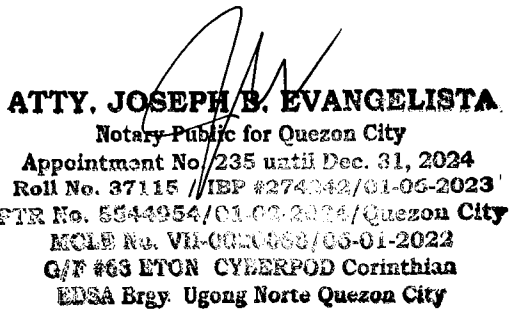 ATTY. JOSEPH B. EVANGELISTA
Notary Public for Quezon City
Appointment No. 235 until Dec. 31, 2024
Roll No. 37115 / IBP #274242/01-06-2023
PTR No. 5544954/01-02-2024/Quezon City
MCLE No. VII-/06-01-2022
G/F #63 ETON CYBERPOD Corinthian
EDSA Brgy. Ugong Norte Quezon City